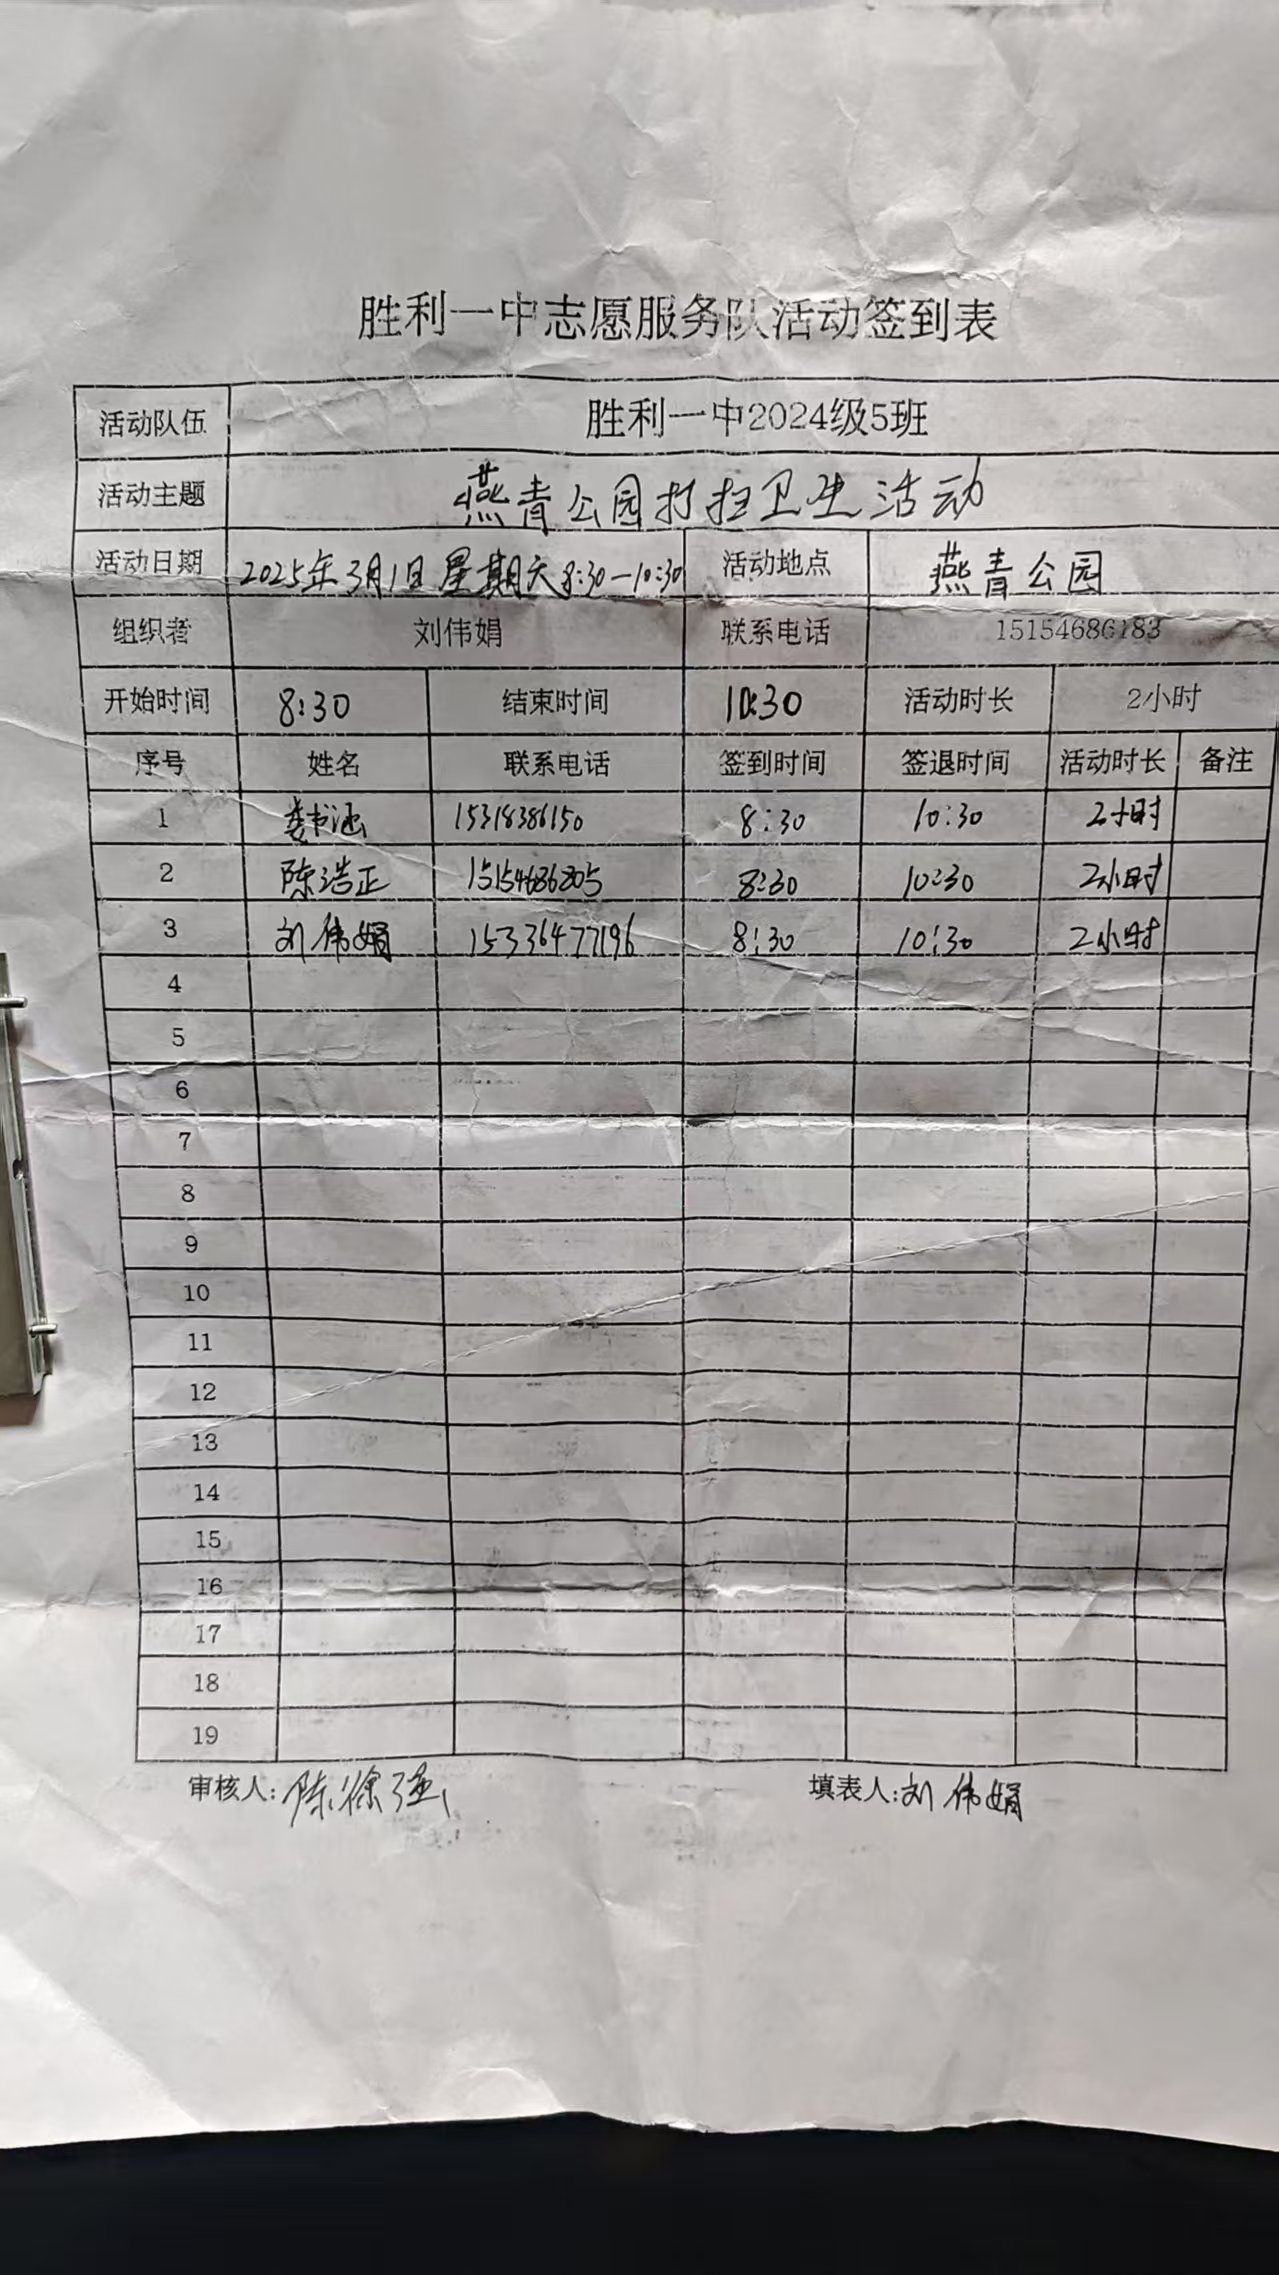 胜利一中志愿服务队活动签到表
活动队伍 胜利一中2024级5班
活动主题 燕青公园打扫卫生活动
活动日期 2025年3月1日 星期天 8:30—10:30 活动地点 燕青公园
组织者 刘伟娟 联系电话 15154686183
开始时间 8:30 结束时间 10:30 活动时长 2小时
序号 姓名 联系电话 签到时间 签退时间 活动时长 备注
1 娄书涵 15318386150 8:30 10:30 2小时
2 陈浩正 15154686205 8:30 10:30 2小时
3 刘伟娟 15336477196 8:30 10:30 2小时
4
5
6
7
8
9
10
11
12
13
14
15
16
17
18
19
审核人:陈徐强 填表人:刘伟娟